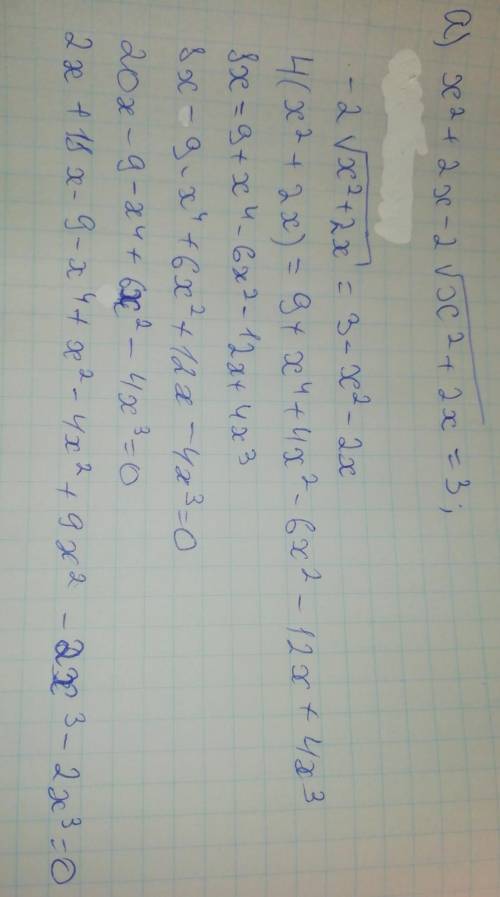 а) x² + 2x - 2√x² + 2x = 3;
-2√x² + 2x = 3 - x² - 2x
4(x² + 2x) = 9 + x⁴ + 4x² - 6x² - 12x + 4x³
8x = 9 + x⁴ - 6x² - 12x + 4x³
8x - 9 - x⁴ + 6x² + 12x - 4x³ = 0
20x - 9 - x⁴ + 6x² - 4x³ = 0
2x + 18x - 9 - x⁴ + x² - 4x² + 9x² - 2x³ - 2x³ = 0